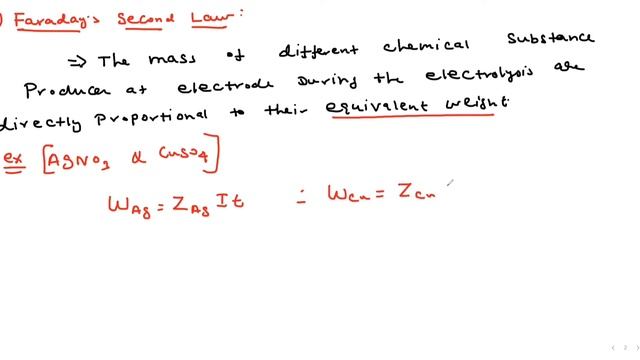 ) Faraday's Second Law:
⇒ The mass of different chemical substance
Producer at electrode During the electrolysis are
directly Proportional to their equivalent weight.
ex [AgNO3 & CuSO4]
W_Ag = Z_Ag I t ∴ W_Cu = Z_Cu